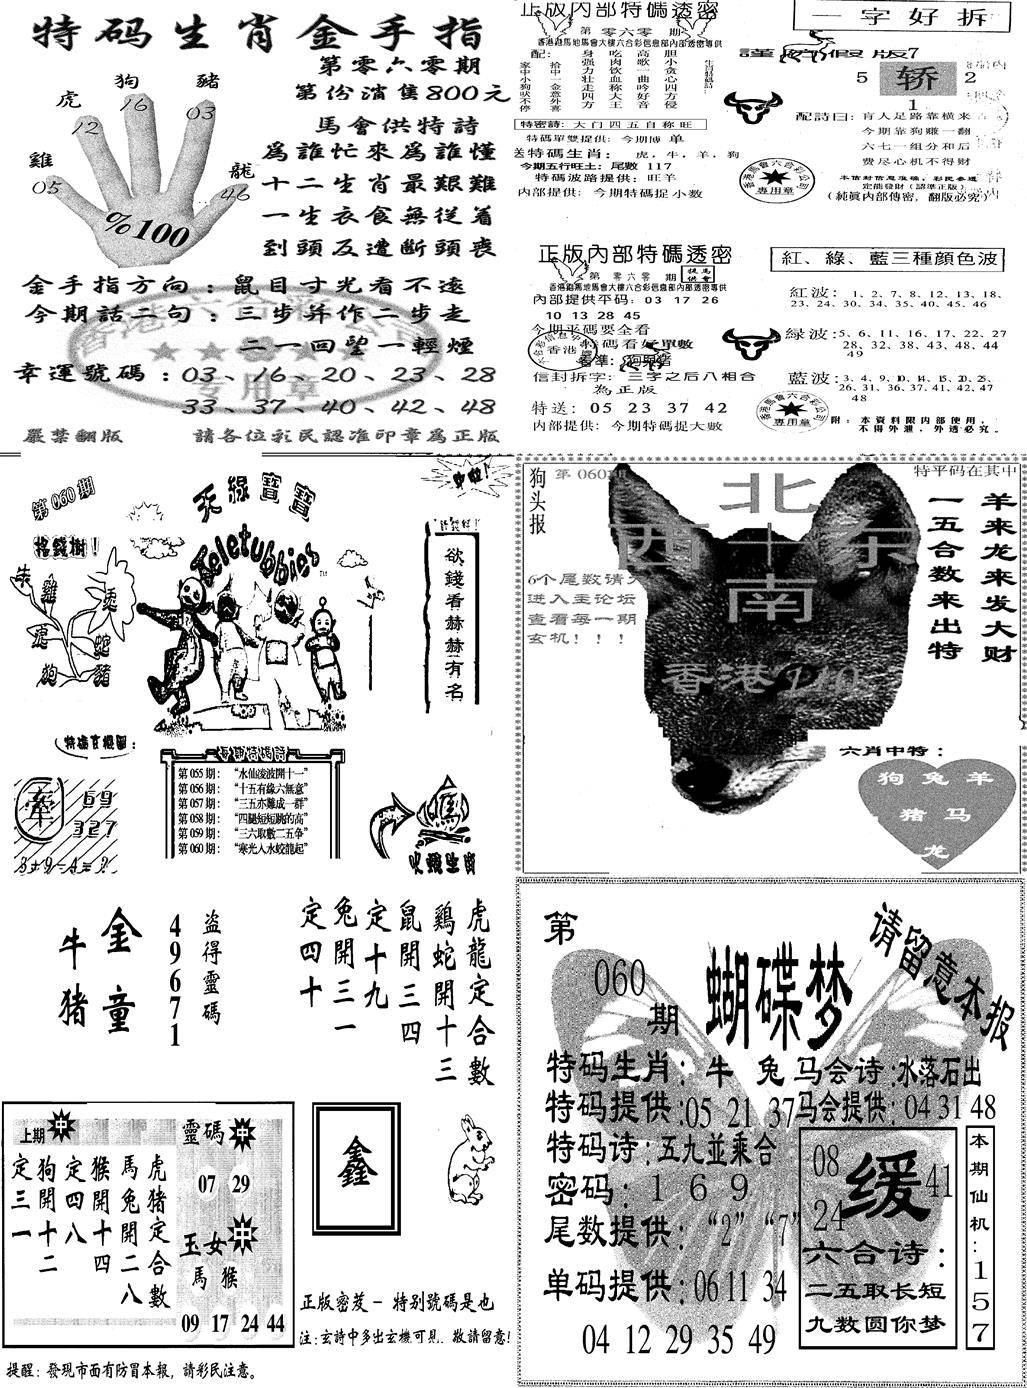 特码生肖金手指
第零六零期
第份消售800元
馬會供特詩
爲誰忙來爲誰懂
十二生肖最艱難
一生衣食無從着
到頭反遭斷頭喪
狗
豬
虎
16
03
12
雞
龍
05
46
%100
金手指方向：鼠目寸光看不遠
今期話二句：三步并作二步走
二一回望一輕煙
幸運號碼：03、16、20、23、28
33、37、40、42、48
專用章
嚴禁翻版
請各位彩民認准印章爲正版
正版内部特碼透密
第 零六零 期
香港跑馬地馬會大樓六合彩信息部內部透密專供
配：
身强力壮走四方
吃肉饮血称大王
高歌一曲吟好音
胆小贪心四方侵
拾中一金意外喜
家中小狗吠不停
特密詩：大门四五自称旺
特碼單雙提供：今期博 单
送特碼生肖：虎，牛，羊，狗
今期五行旺土：尾數 117
特碼波路提供：旺羊
内部提供：今期特碼捉小数
一字好拆
7
5
轿
2
1
配詩曰：肓人足路靠横来
今期靠狗賺一翻
六七一组分和后
费尽心机不得财
定能發財（認準正版）
（純眞内部傳密，翻版必究）
專用章
正版内部特碼透密
第 零六零 期
香港跑馬地馬會大樓六合彩信息部內部透密專供
内部提供平码：03 17 26
10 13 28 45
今期平碼要全看
特碼看好單數
香港
信封拆字：三字之后八相合
為正版
特送：05 23 37 42
内部提供：今期特碼捉大數
紅、綠、藍三種顔色波
紅波：1、2、7、8、12、13、18、
23、24、30、34、35、40、45、46
緑波：5、6、11、16、17、22、27
28、32、38、43、48、44
49
藍波：3、4、9、10、14、15、20、25、
26、31、36、37、41、42、47
48
附：本資料限内部使用，
不得外泄，外透必究。
專用章
第060期
天線寶寶
Teletubbies
搖錢樹！
雞
虎
蛇
狗
豬
欲錢看赫赫有名
69
327
3+9-4=？
第055期："水仙凌波開十一"
第056期："十五有緣六無意"
第057期："三五亦難成一群"
第058期："四腿短短跳的高"
第059期："三六取數二五争"
第060期："寒光入水蛟龍起"
火燒生肖
狗头报
第 060期
特平码在其中
北
西十东
南
羊来龙来发大财
一五合数来出特
6个尾数请
进入主论坛
查看每一期
玄机！！！
六肖中特：
狗 兔 羊
猪 马
龙
金童
牛猪
盗得靈碼
496671
虎龍定合數
鷄蛇開十三
鼠開三四
定十九
兔開三一
定四十
上期
中
虎猪定合數
馬兔開二八
猴開十四
定四八
狗開十二
定三一
靈碼
中
07 29
玉女
中
馬 猴
09 17 24 44
鑫
正版密笈－特别號碼是也
注：玄詩中多出玄機可見，敬請留意！
提醒：發現市面有防冒本報，請彩民注意。
第
060
期
蝴蝶梦
请留意本报
特码生肖：牛 兔
特码提供：05 21 37
特码诗：五九並乘合
密码：1 6 9
尾数提供："2" "7"
单码提供：06 11 34
04 12 29 35 49
马会诗：水落石出
马会提供：04 31 48
08
缓
41
24
六合诗：
二五取长短
九数圆你梦
本期仙机：157